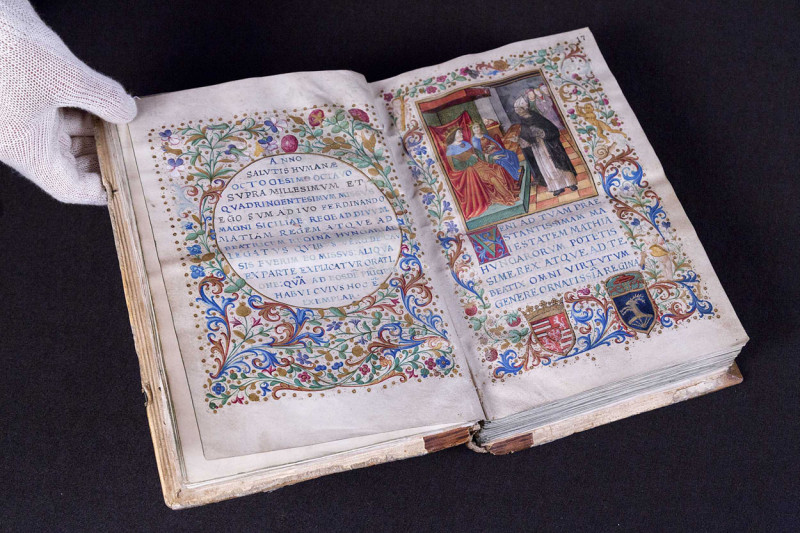 ANNO
SALVTIS HVMANÆ
OCTOGESIMO OCTAVO
SVPRA MILLESIMVM ET
QVADRINGENTESIMVM
EGO SVM AD IVO FERDINANDO
MAGNI SICILIAE REGE AD DIVVM
REGEM ATQVE AD
BEATRICEM HVNG
LEGATVS
SIS FVERIM EO MISSVS ALIQVA
EX PARTE EXPLICATVR ORATI
QVA
HABVI CVIVS HOC E
EXEMPLAR
17
TVAM PRAE
STANTISSIMAM MA
IESTATEM MATHIA
HVNGARORVM POTITIS
SIME REX ATQVE AD TE
BEATIX OMNI VIRTVTVM
GENERE ORNALISSIA REGINA